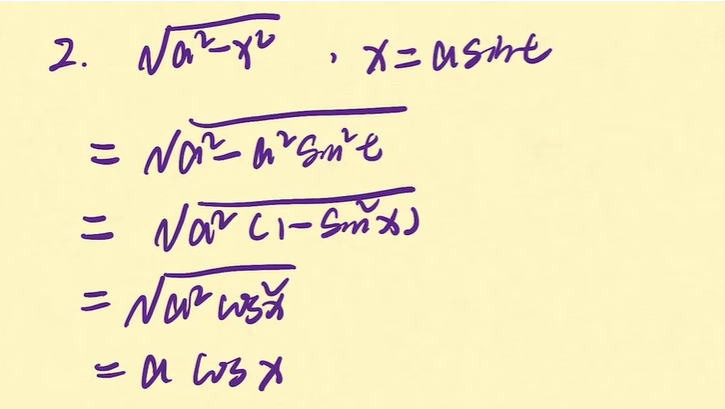 2. √(a²-x²) , x = a sin t
= √(a² - a² sin² t)
= √(a² (1 - sin² x))
= √(a² cos² x)
= a cos x